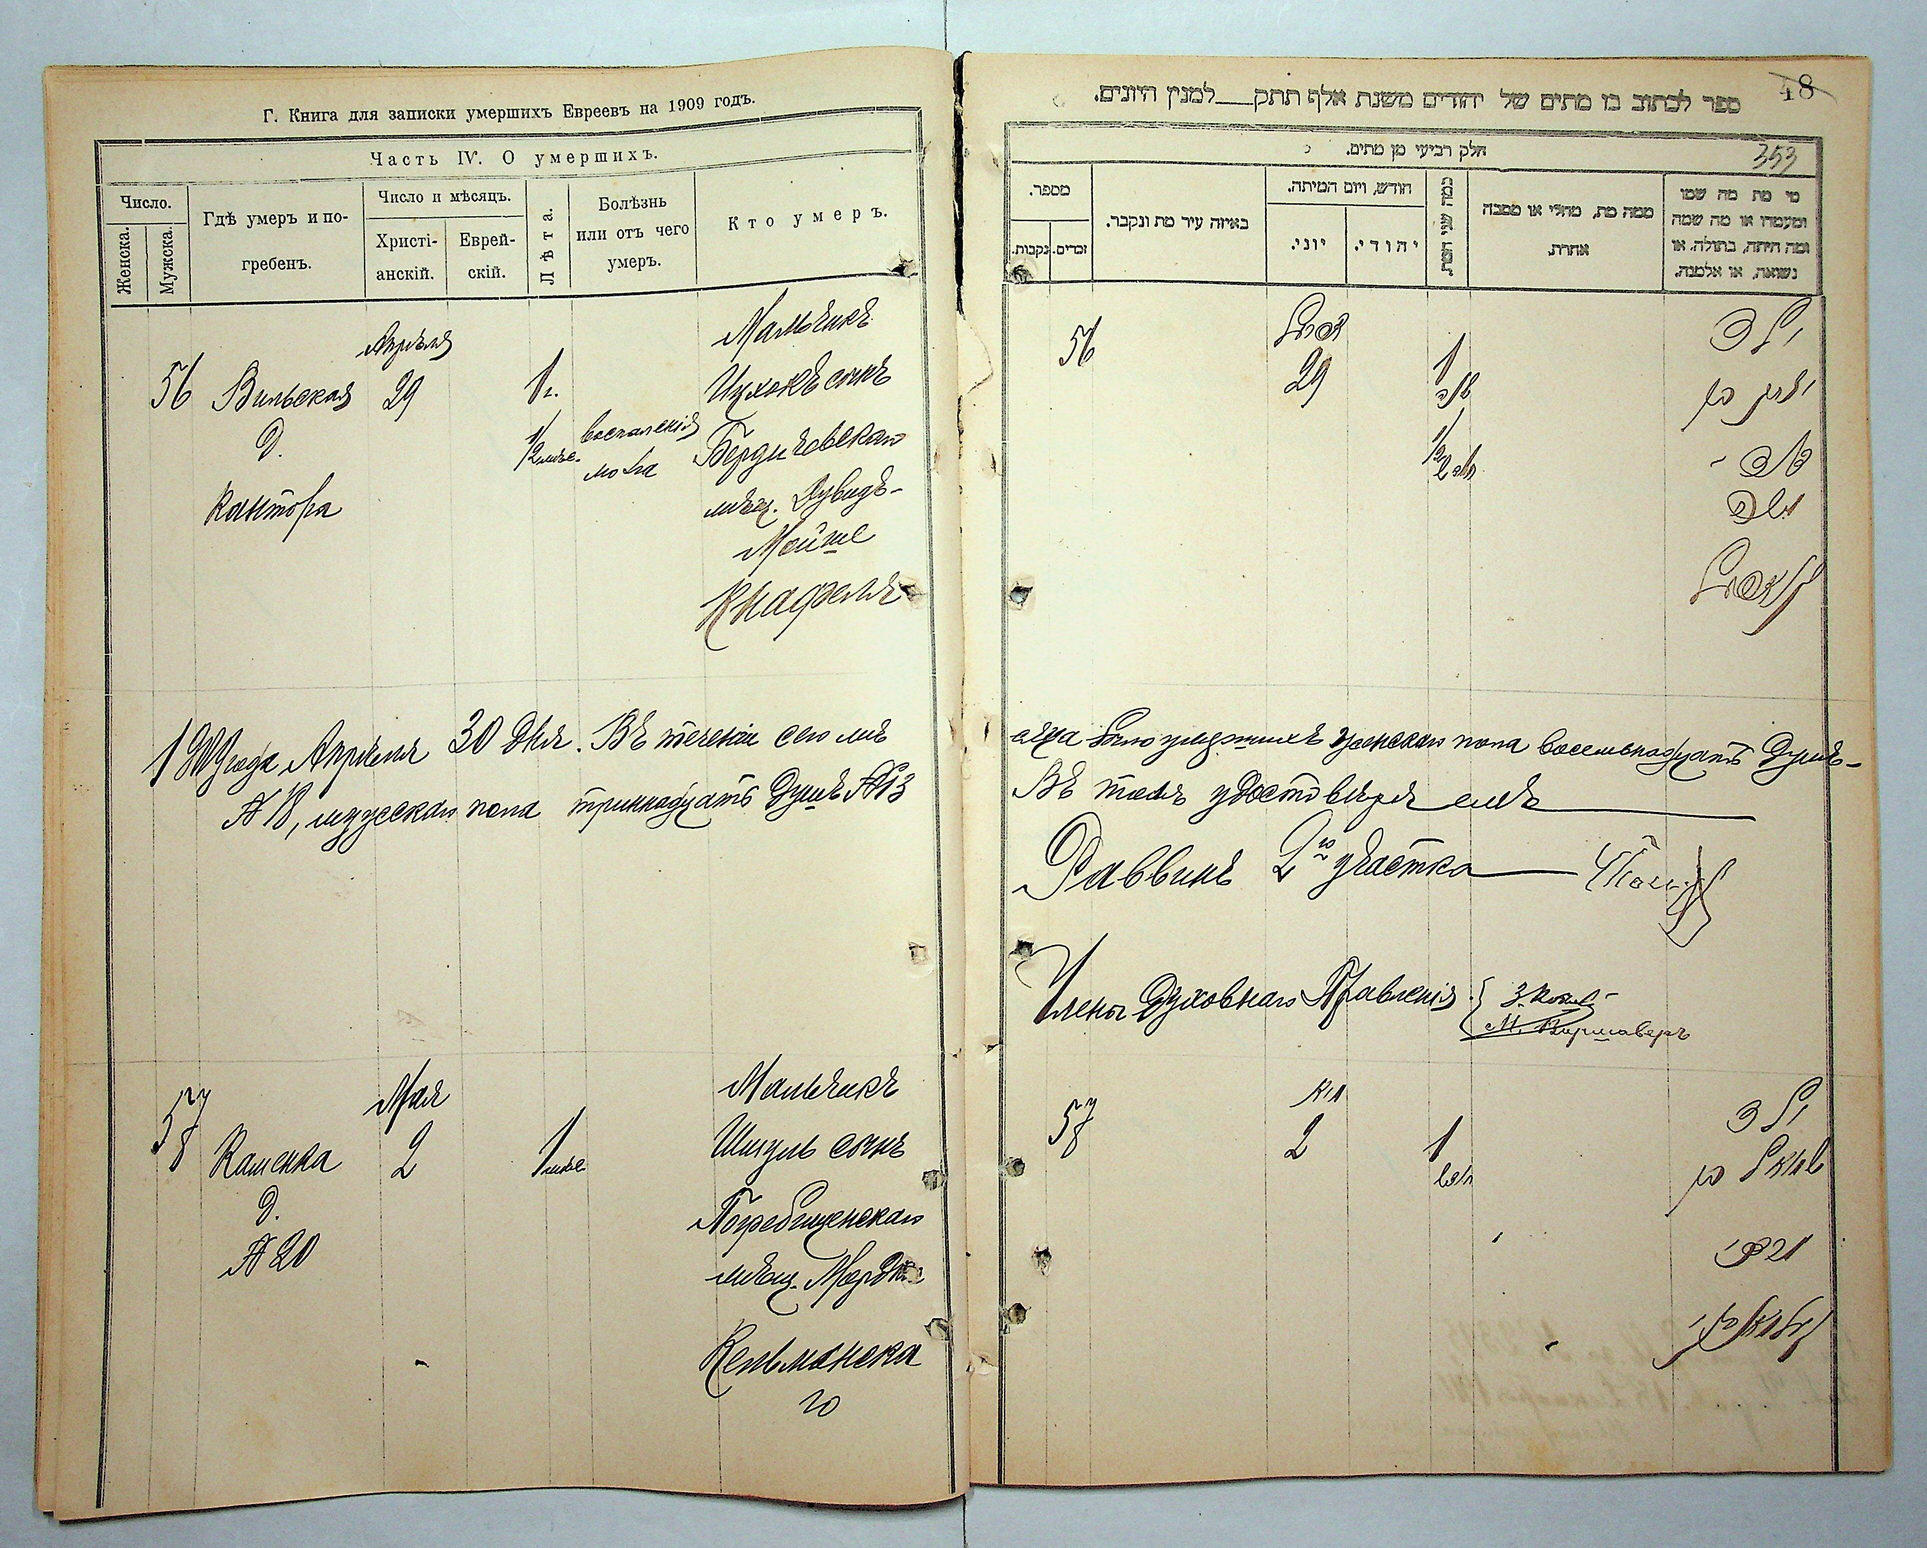 Г. Книга для записки умершихъ Евреевъ на 1909 годъ.
Часть IV. О умершихъ.
Число.
Женска.
Мужска.
Гдѣ умеръ и по-
гребенъ.
Число и мѣсяцъ.
Христі-
анскій.
Еврей-
скій.
Лѣта.
Болѣзнь
или отъ чего
умеръ.
Кто умеръ.
Апрѣля
56 Вильская 29 1 г.
Д.
Кантора
1/2 мѣс.
воспаленія
мозга
Мальчикъ
Ицхокъ сынъ
Бердичевскаго
мѣщ. Дувидъ-
Мойше
Кнафель
1909 года Апрѣля 30 дня. Въ теченіи сего мѣ
№ 18, мужескаго пола тринадцать душъ № 13
Мая
57
58
Каменка 2 1 мѣс.
д.
№ 20
Мальчикъ
Шмуль сынъ
Погребищенскаго
мѣщ.
Кельманска
го
48
ספר לכתוב בו מתים של יהודים משנת אלף תתק___למנין היונים.
353
חלק רביעי מן מתים.
מספר.
זכרים.
נקבות.
באיזה עיר מת ונקבר.
חודש, ויום המיתה.
יוני.
יהודי.
כמה שני המת.
ממה מת, מחלי או מסבה
אחרת.
מי מת מה שמו
ומעמדו או מה שמה
ומה היתה, בתולה, או
נשואה, או אלמנה.
56
אפריל
29
1
1/2
ילד
יצחק בן
דוד
משה
קנאפיל
сяца было умершихъ женскаго пола восемьнадцать душъ–
Въ томъ удостовѣряемъ
Раввинъ 2го участка
Члены Духовнаго Правленія
М. Варшаверъ
57
58
מאי
2
1
ילד
שמואל בן
מרדכי